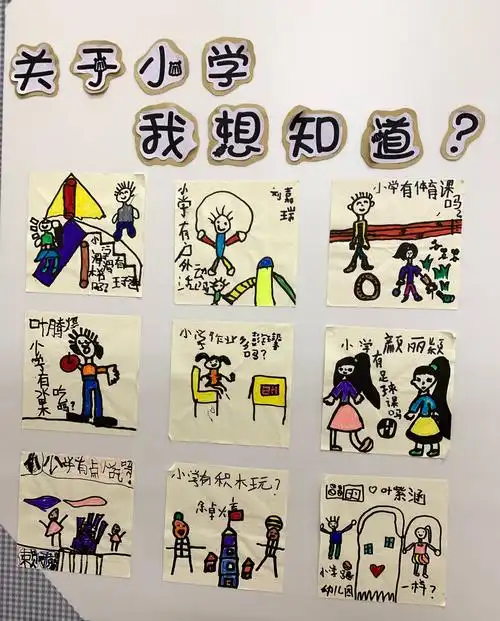 关于小学
我想知道?
小学有滑滑梯吗?
小学有户外活
刘嘉瑞
小学有体育课吗?
叶腾烨
小学有水果吃吗?
小学作业多吗?
小学有足球课吗
颜丽颖
小学有点心吃吗?
小学有积木玩?
叶紫涵
小学跟幼儿园一样?